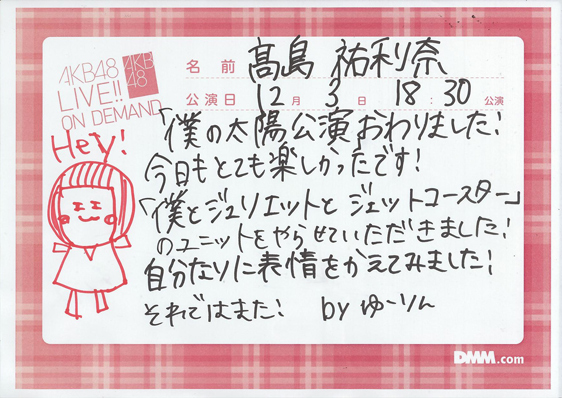 AKB48
LIVE!!
ON DEMAND
AKB
48
名前 髙島 祐利奈
公演日 12月 3日 18:30公演
Hey!
「僕の太陽公演おわりました!
今日もとても楽しかったです!
「僕とジュリエットとジェットコースター」
のユニットをやらせていただきました!
自分なりに表情をかえてみました!
それではまた! by ゆーりん
DMM.com